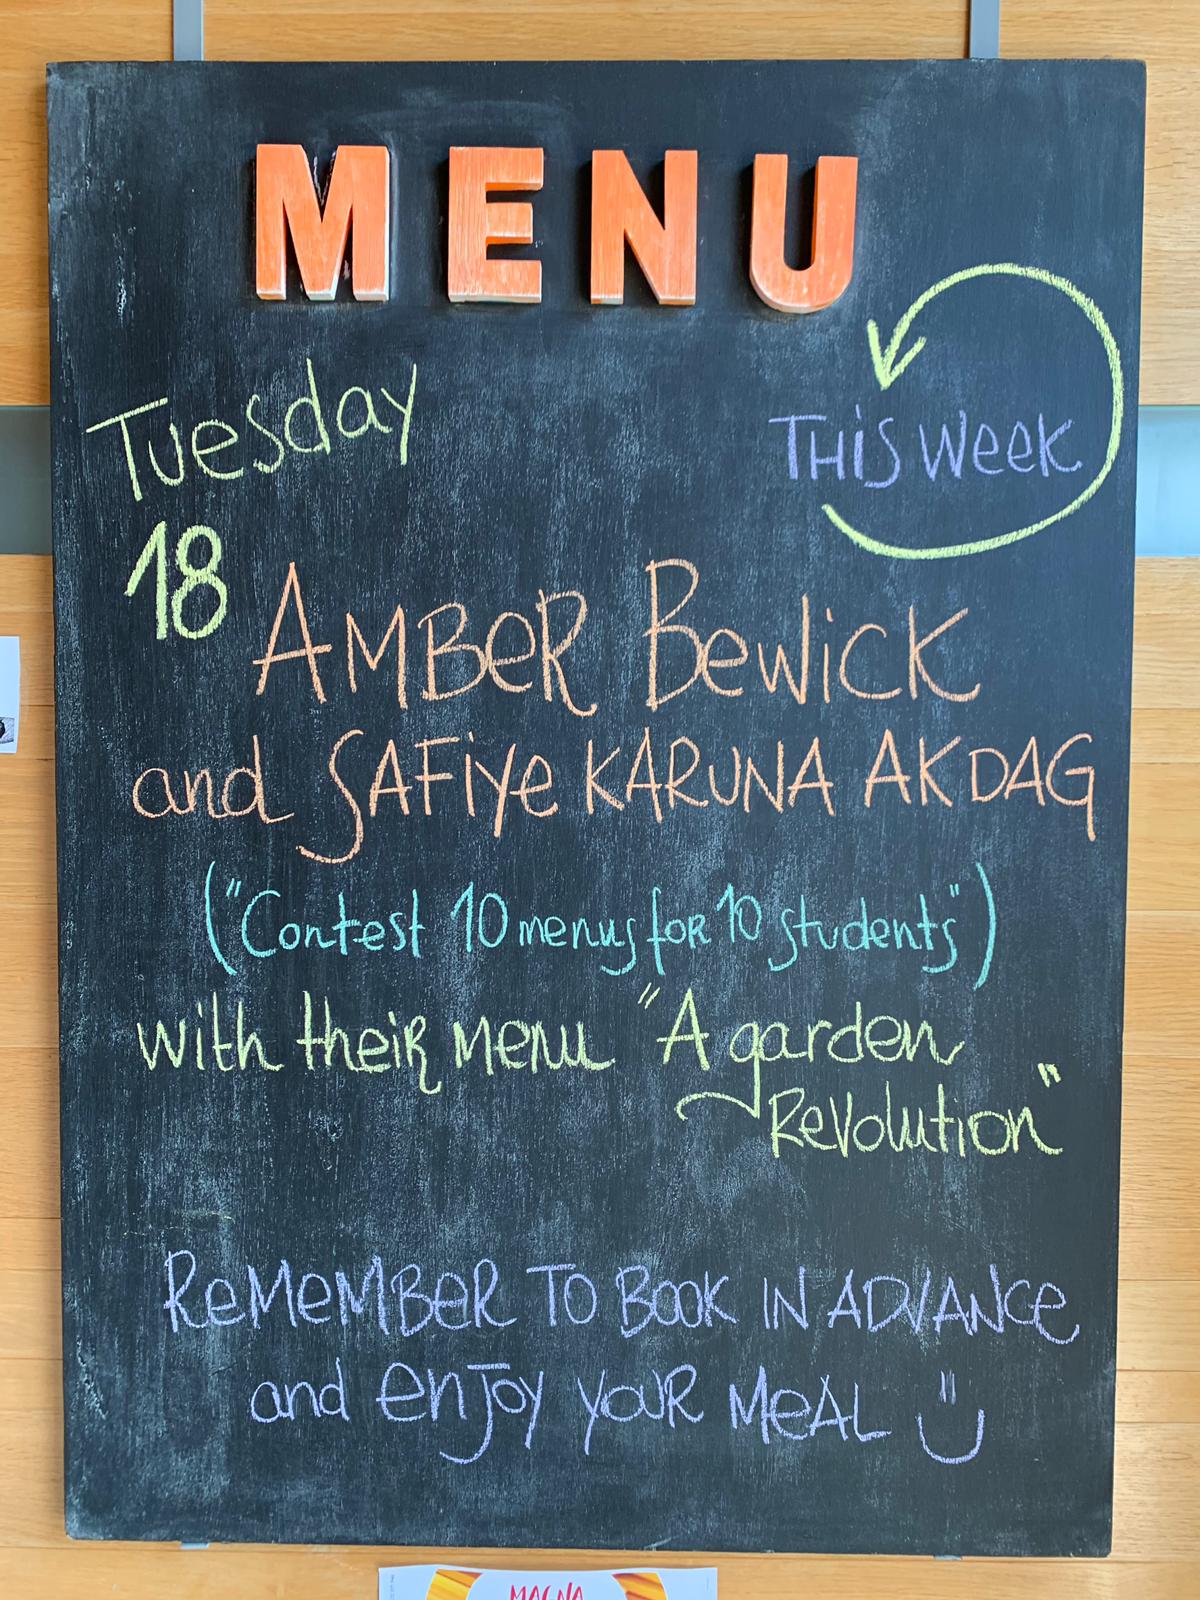 MENU
Tuesday
THiS Week
18
AMBeR BewicK
and SAFiYe KARUNA AKDAG
("Contest 10 menus for 10 students")
with their menu "A garden
Revolution"
ReMeMBeR TO BOOK IN ADVANce
and enjoy your MeAL
MAGNA